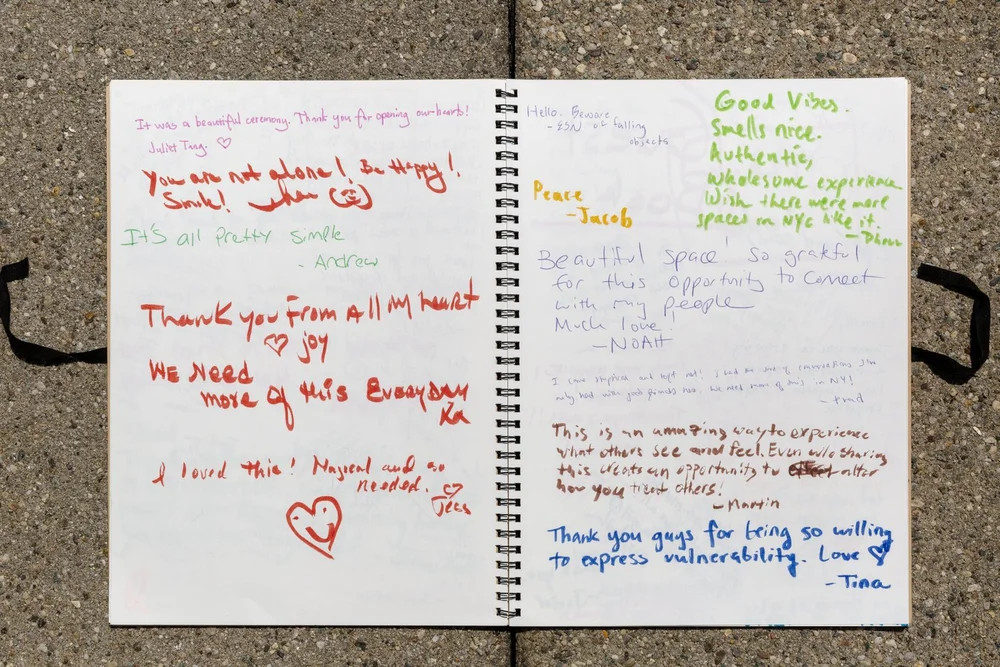 It was a beautiful ceremony. Thank you for opening our hearts!
Juliet Tang. ♡
You are not alone! Be Happy!
Smile!
It's all pretty simple
- Andrew
Thank you From All My heart
♡ joy
WE NEED
more of this Everyday
I loved this! Magical and so
needed. ♡
Jess
Hello. Beware
- ESN of falling
objects
Peace
- Jacob
Good Vibes.
Smells nice.
Authentic,
wholesome experience
Wish there were more
spaces in NYC like it.
Beautiful space! So grateful
for this opportunity to connect
with my people
Much love!
- NOAH
I came skeptical and left not! I had the sort of conversations I'm
only had with good friends here, we need more of this in NY!
This is an amazing way to experience
what others see and feel. Even while sharing
this creates an opportunity to alter
how you treat others!
- Martin
Thank you guys for being so willing
to express vulnerability. Love ♡
- Tina